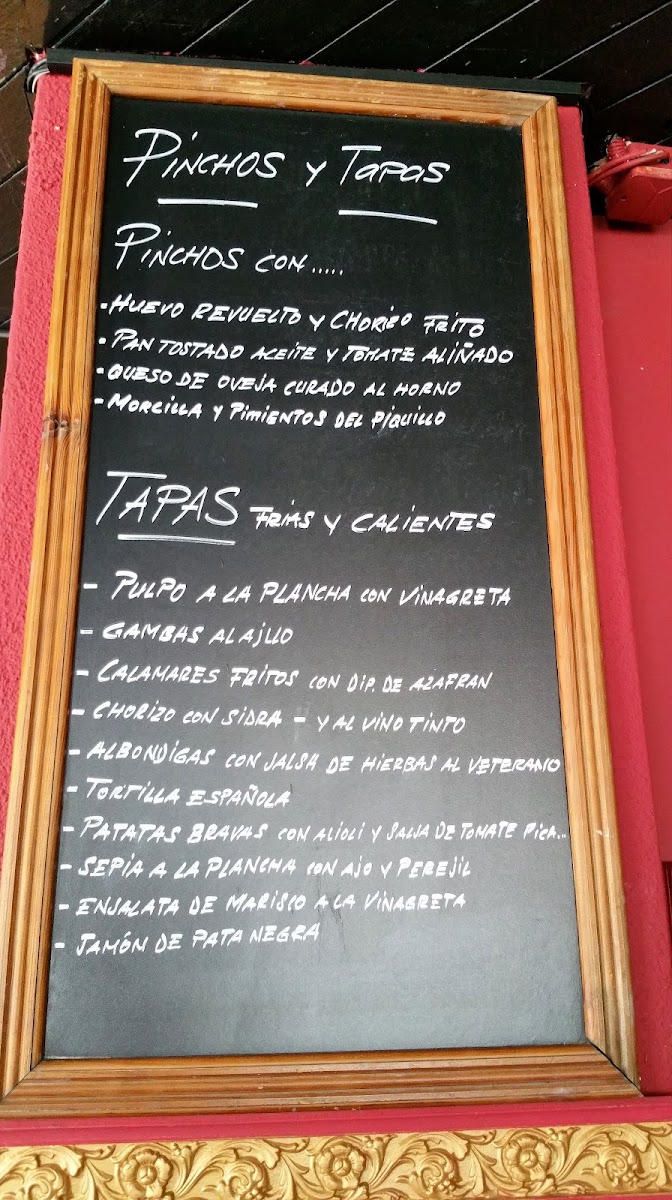 PINCHOS Y TAPAS
PINCHOS CON.....
- HUEVO REVUELTO Y CHORIZO FRITO
- PAN TOSTADO ACEITE Y TOMATE ALIÑADO
- QUESO DE OVEJA CURADO AL HORNO
- MORCILLA Y PIMIENTOS DEL PIQUILLO
TAPAS FRIAS Y CALIENTES
- PULPO A LA PLANCHA CON VINAGRETA
- GAMBAS AL AJILLO
- CALAMARES FRITOS CON DIP. DE AZAFRAN
- CHORIZO CON SIDRA - Y AL VINO TINTO
- ALBONDIGAS CON SALSA DE HIERBAS AL VETERANO
- TORTILLA ESPAÑOLA
- PATATAS BRAVAS CON ALIOLI Y SALSA DE TOMATE PICA...
- SEPIA A LA PLANCHA CON AJO Y PEREJIL
- ENSALATA DE MARISCO A LA VINAGRETA
- JAMÓN DE PATA NEGRA